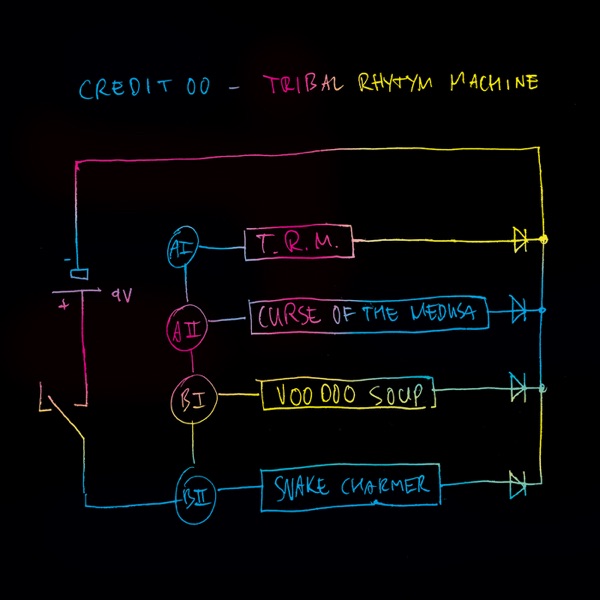 CREDIT 00 - TRIBAL RHYTYM MACHINE
AI T.R.M.
- 
+ 9V
AII CURSE OF THE MEDUSA
BI VOODOO SOUP
BII SNAKE CHARMER